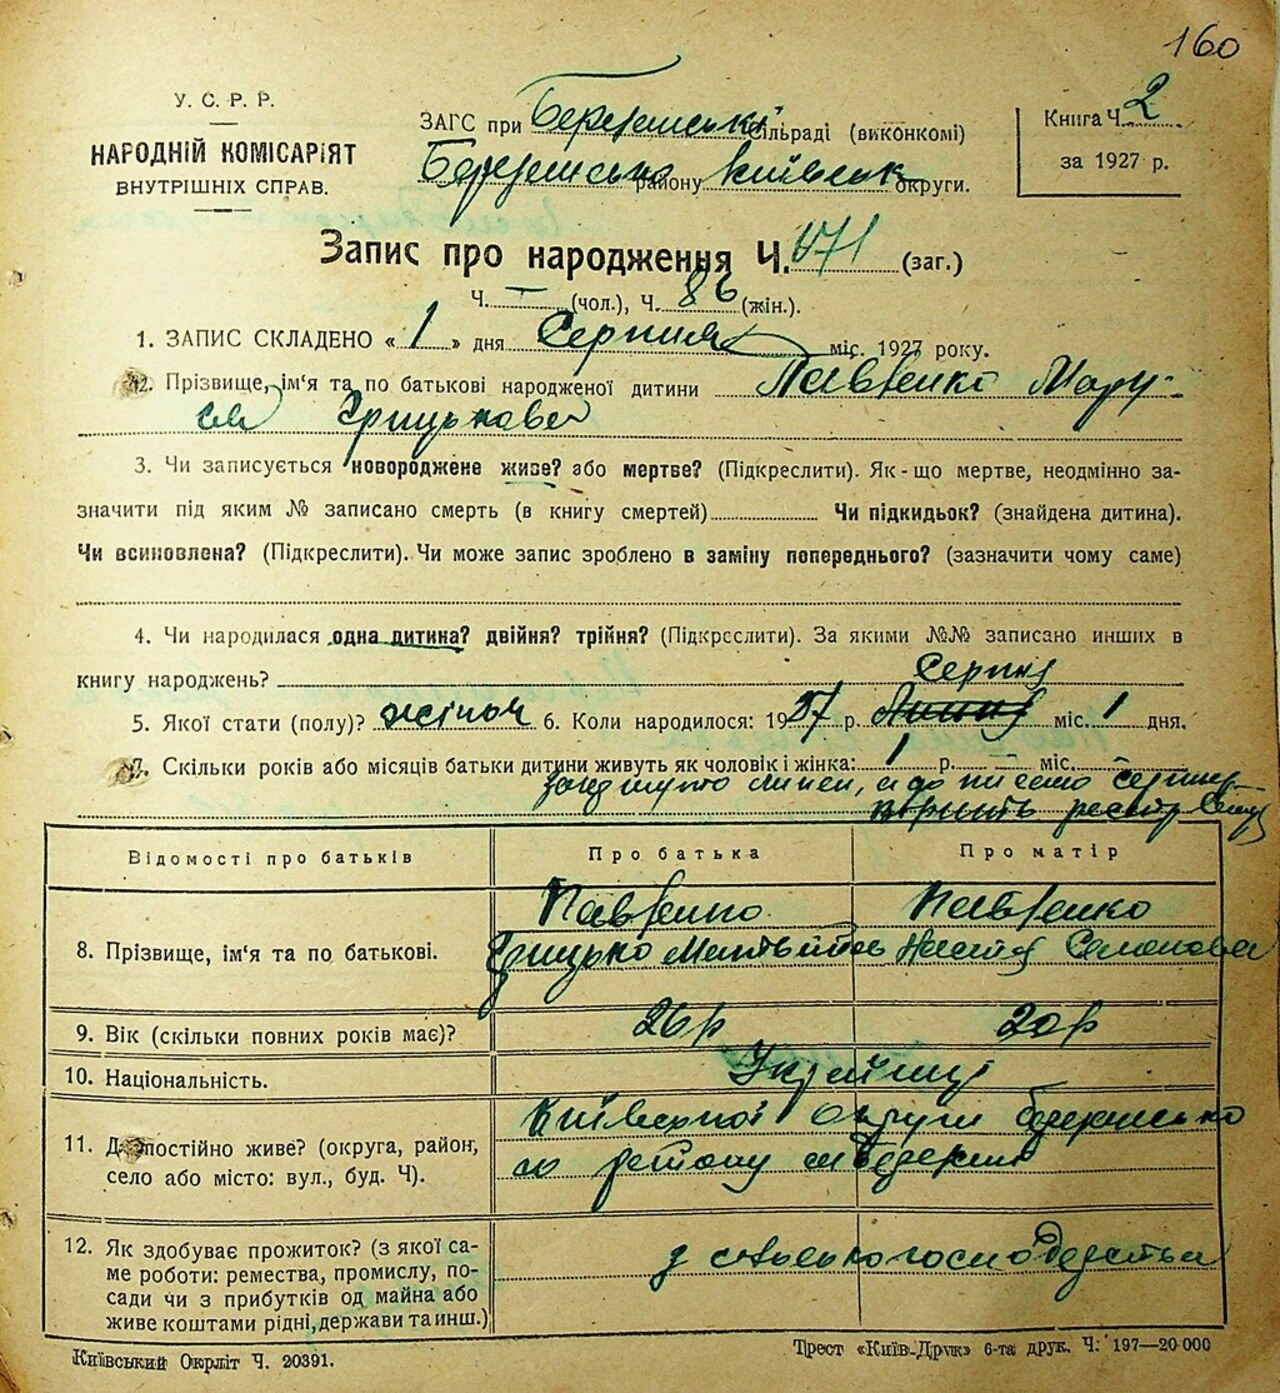 160
У. С. Р. Р.
НАРОДНІЙ КОМІСАРІЯТ
ВНУТРІШНІХ СПРАВ.
ЗАГС при сільраді (виконкомі)
району Київськ округи.
Книга Ч. 2
за 1927 р.
Запис про народження Ч. 171 (заг.)
Ч. — (чол.), Ч. 86 (жін.).
1. ЗАПИС СКЛАДЕНО « 1 » дня Серпня міс. 1927 року.
2. Прізвище, ім'я та по батькові народженої дитини Павленко Мару-
ся Грицькова
3. Чи записується новороджене живе? або мертве? (Підкреслити). Як-що мертве, неодмінно за-
значити під яким № записано смерть (в книгу смертей) Чи підкидьок? (знайдена дитина).
Чи всиновлена? (Підкреслити). Чи може запис зроблено в заміну попереднього? (зазначити чому саме)
4. Чи народилася одна дитина? двійня? трійня? (Підкреслити). За якими №№ записано инших в
книгу народжень?
Серпня
5. Якої стати (полу)? жіноч 6. Коли народилося: 1927 р. Липня міс. 1 дня.
7. Скільки років або місяців батьки дитини живуть як чоловік і жінка: 1 р. — міс.
Відомості про батьків Про батька Про матір
Павленко Павленко
8. Прізвище, ім'я та по батькові. Грицько Матвійов Настя Семенова
9. Вік (скільки повних років має)? 26 р 20 р
10. Національність. Українці
11. Де постійно живе? (округа, район, село або місто: вул., буд. Ч). Київської округи
району
12. Як здобуває прожиток? (з якої са-
ме роботи: ремества, промислу, по-
сади чи з прибутків од майна або
живе коштами рідні, держави та инш.)
з сільського господарства
Київський Окрліт Ч. 20391.
Трест «Київ-Друк» 6-та друк. Ч. 197—20 000